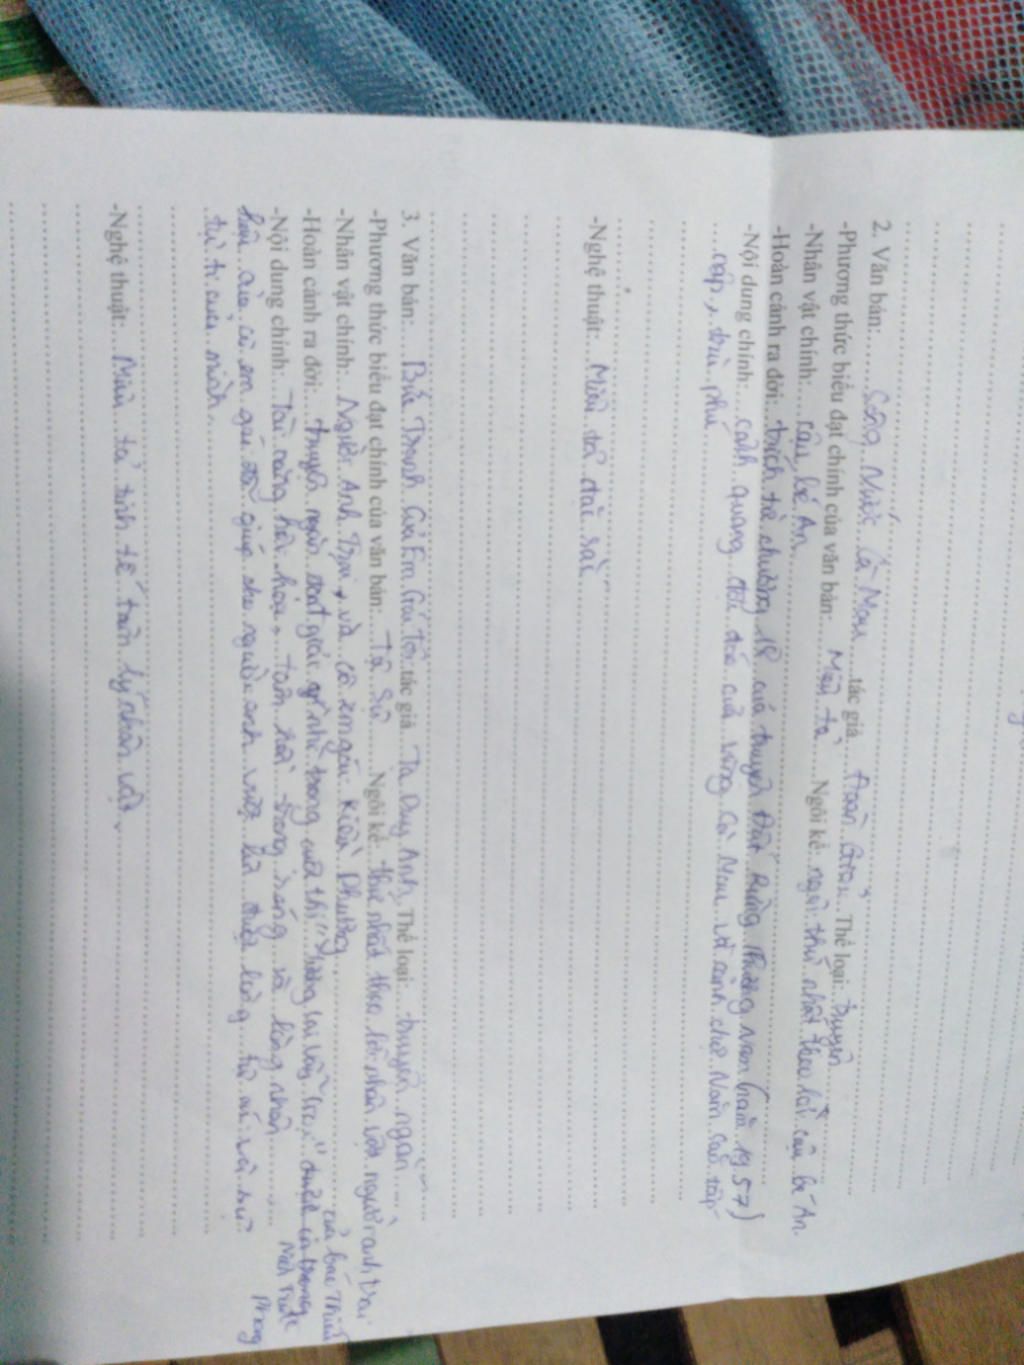 2. Văn bản: Sông Nước Cà Mau tác giả Đoàn Giỏi Thể loại: truyện
-Phương thức biểu đạt chính của văn bản: Miêu tả Ngôi kể: ngôi thứ nhất theo lời cậu bé An.
-Nhân vật chính: cậu bé An
-Hoàn cảnh ra đời: trích từ chương 18 của truyện Đất Rừng Phương Nam (năm 1957)
-Nội dung chính: cảnh quang độc đáo của vùng Cà Mau và cảnh chợ Năm Căn tấp
nập, trù phú
-Nghệ thuật: Miêu tả đặc sắc
3. Văn bản: Bức Tranh Của Em Gái Tôi tác giả Tạ Duy Anh Thể loại: truyện ngắn
-Phương thức biểu đạt chính của văn bản: Tự Sự Ngôi kể thứ nhất theo lời nhân vật người anh trai
-Nhân vật chính: Người Anh Trai, và cô em gái Kiều Phương
-Hoàn cảnh ra đời: truyện ngắn đoạt giải nhì trong cuộc thi "Tương lai vẫy gọi" của báo Thiếu
Niên Tiền
Phong
-Nội dung chính: Tài năng hội họa, tâm hồn trong sáng và lòng nhân
hậu của cô em gái đã giúp cho người anh vượt lên được lòng tự ái và sự
tự ti của mình.
-Nghệ thuật: Miêu tả tinh tế tâm lý nhân vật.